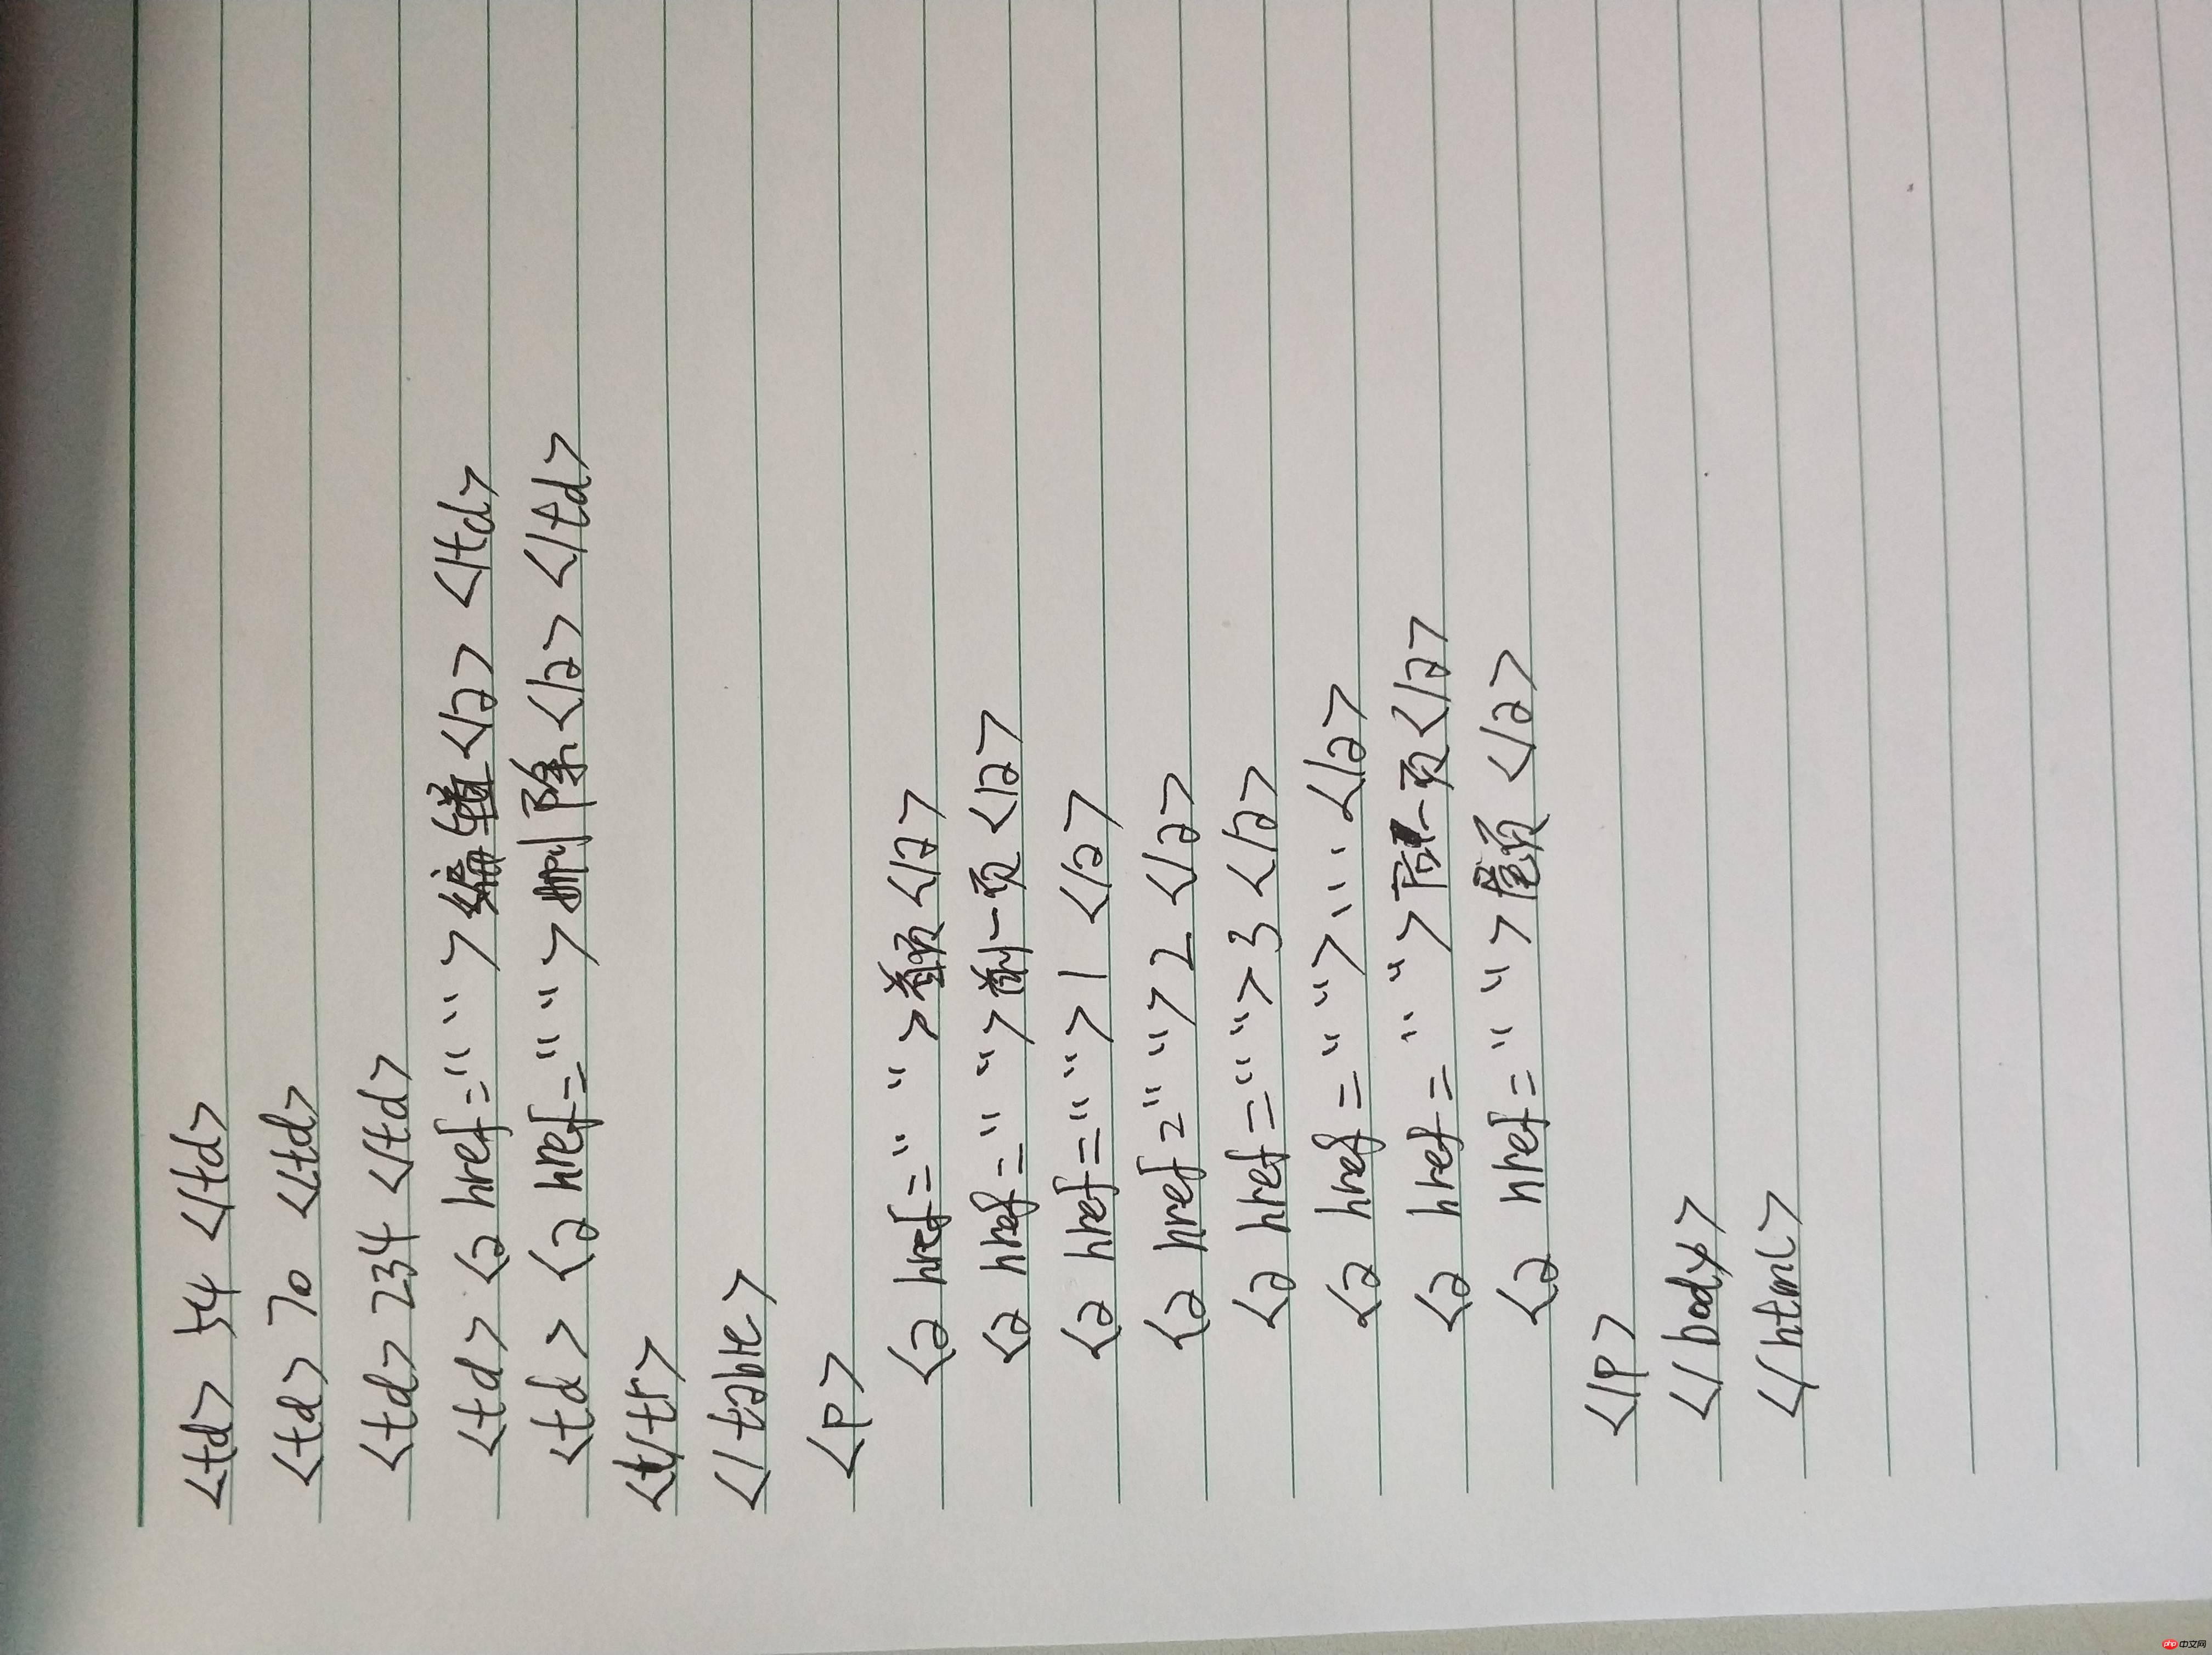 <td> 54 </td>
<td> 70 </td>
<td> 234 </td>
<td> <a href=" ">编辑</a> </td>
<td> <a href=" ">删除</a> </td>
</tr>
</table>
<p>
<a href=" ">首页</a>
<a href=" ">前一页</a>
<a href=" ">1</a>
<a href=" ">2</a>
<a href=" ">3</a>
<a href=" ">...</a>
<a href=" ">后一页</a>
<a href=" ">尾页</a>
</p>
</body>
</html>
php 中文网